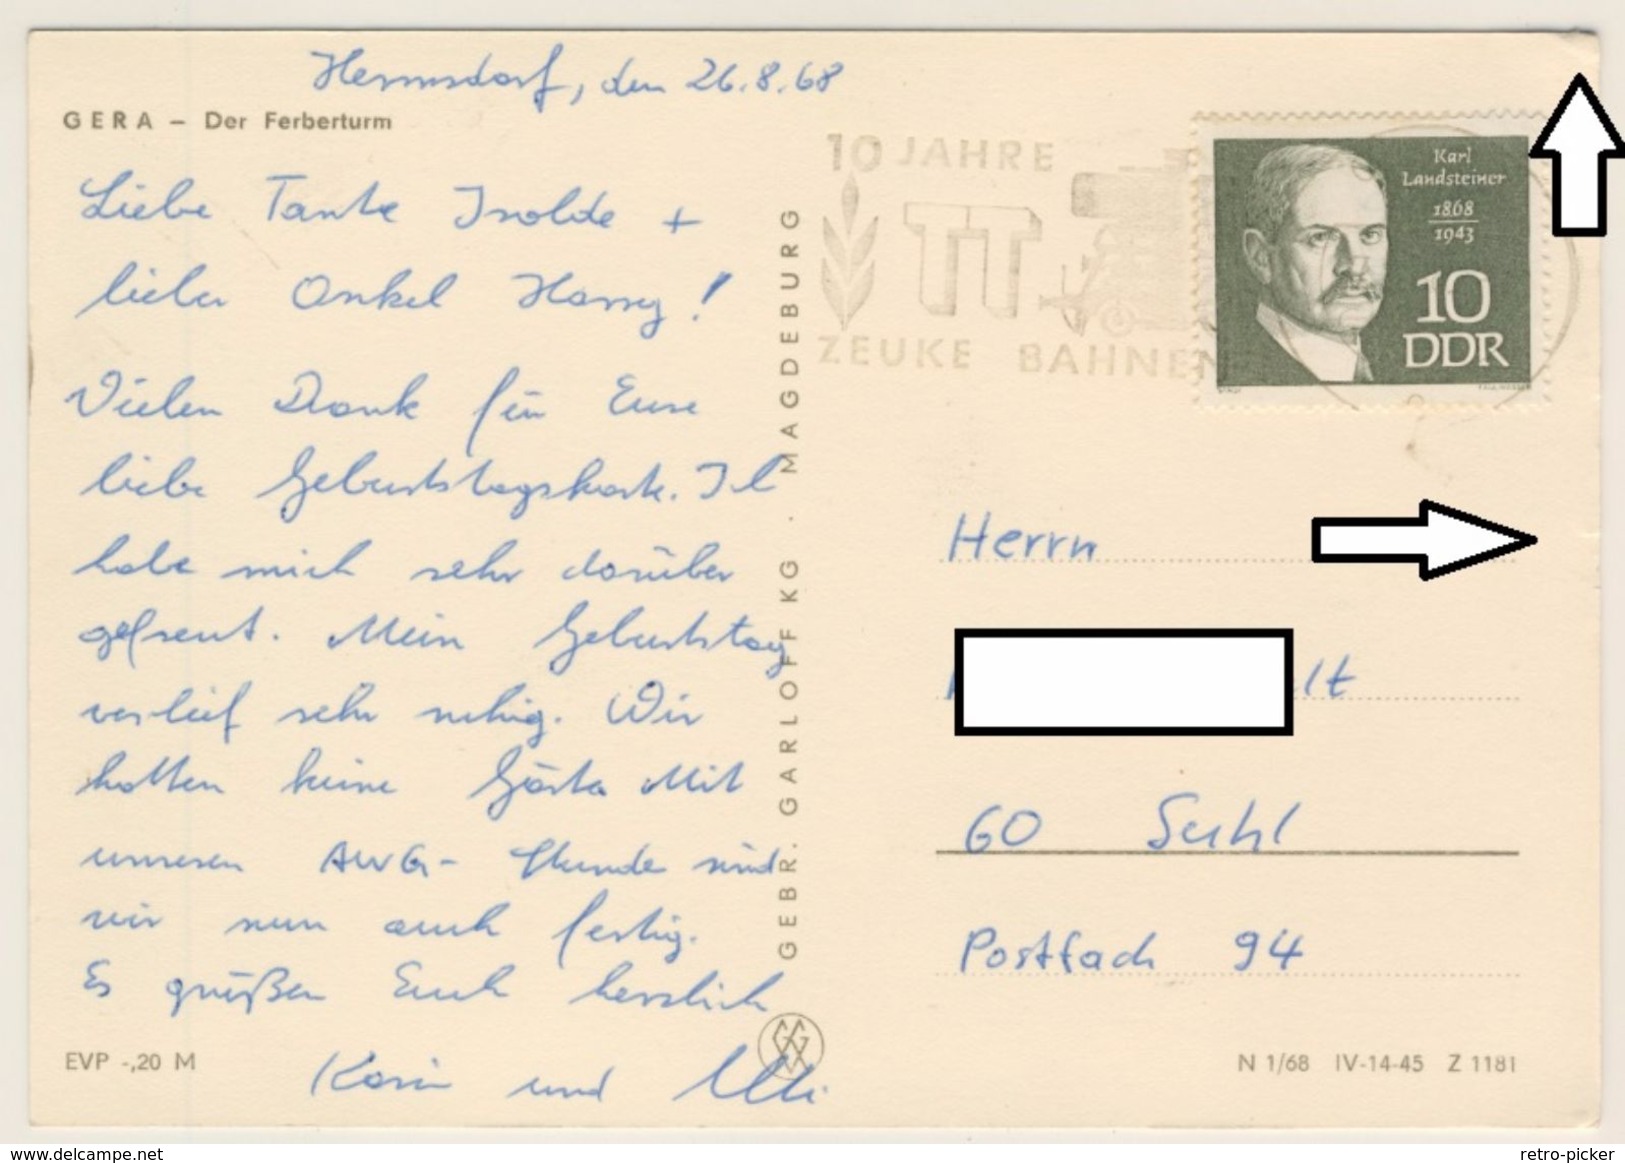 Hermsdorf, den 26.8.68
GERA – Der Ferberturm
Liebe Tante Isolde +
lieber Onkel Harry!
Vielen Dank für Eure
liebe Geburtstagskarte. Ich
habe mich sehr darüber
gefreut. Mein Geburtstag
verlief sehr ruhig. Wir
hatten keine Gäste. Mit
unseren AWG- Stunden sind
wir nun auch fertig.
Es grüßen Euch herzlich
Karin und Ulli
EVP -,20 M
GEBR. GARLOFF KG . MAGDEBURG
10 JAHRE
TT
ZEUKE BAHNEN
Karl
Landsteiner
1868
1943
10
DDR
Herrn
lt
60 Suhl
Postfach 94
N 1/68 IV-14-45 Z 1181
www.delcampe.net
retro-picker